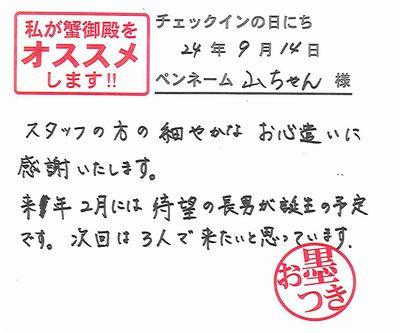 私が蟹御殿を
オススメ
します!!
チェックインの日にち
24年9月14日
ペンネーム 山ちゃん 様
スタッフの方の細やかな お心遣いに
感謝いたします。
来年2月には 待望の長男が誕生の予定
です。次回は3人で来たいと思っています.
お墨つき